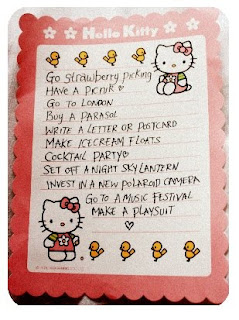 Hello Kitty
Go strawberry picking
Have a picnik
Go to London
Buy a parasol
Write a letter or postcard
Make icecream floats
Cocktail party
Set off a night sky lantern
Invest in a new polaroid camera
Go to a music festival
Make a playsuit